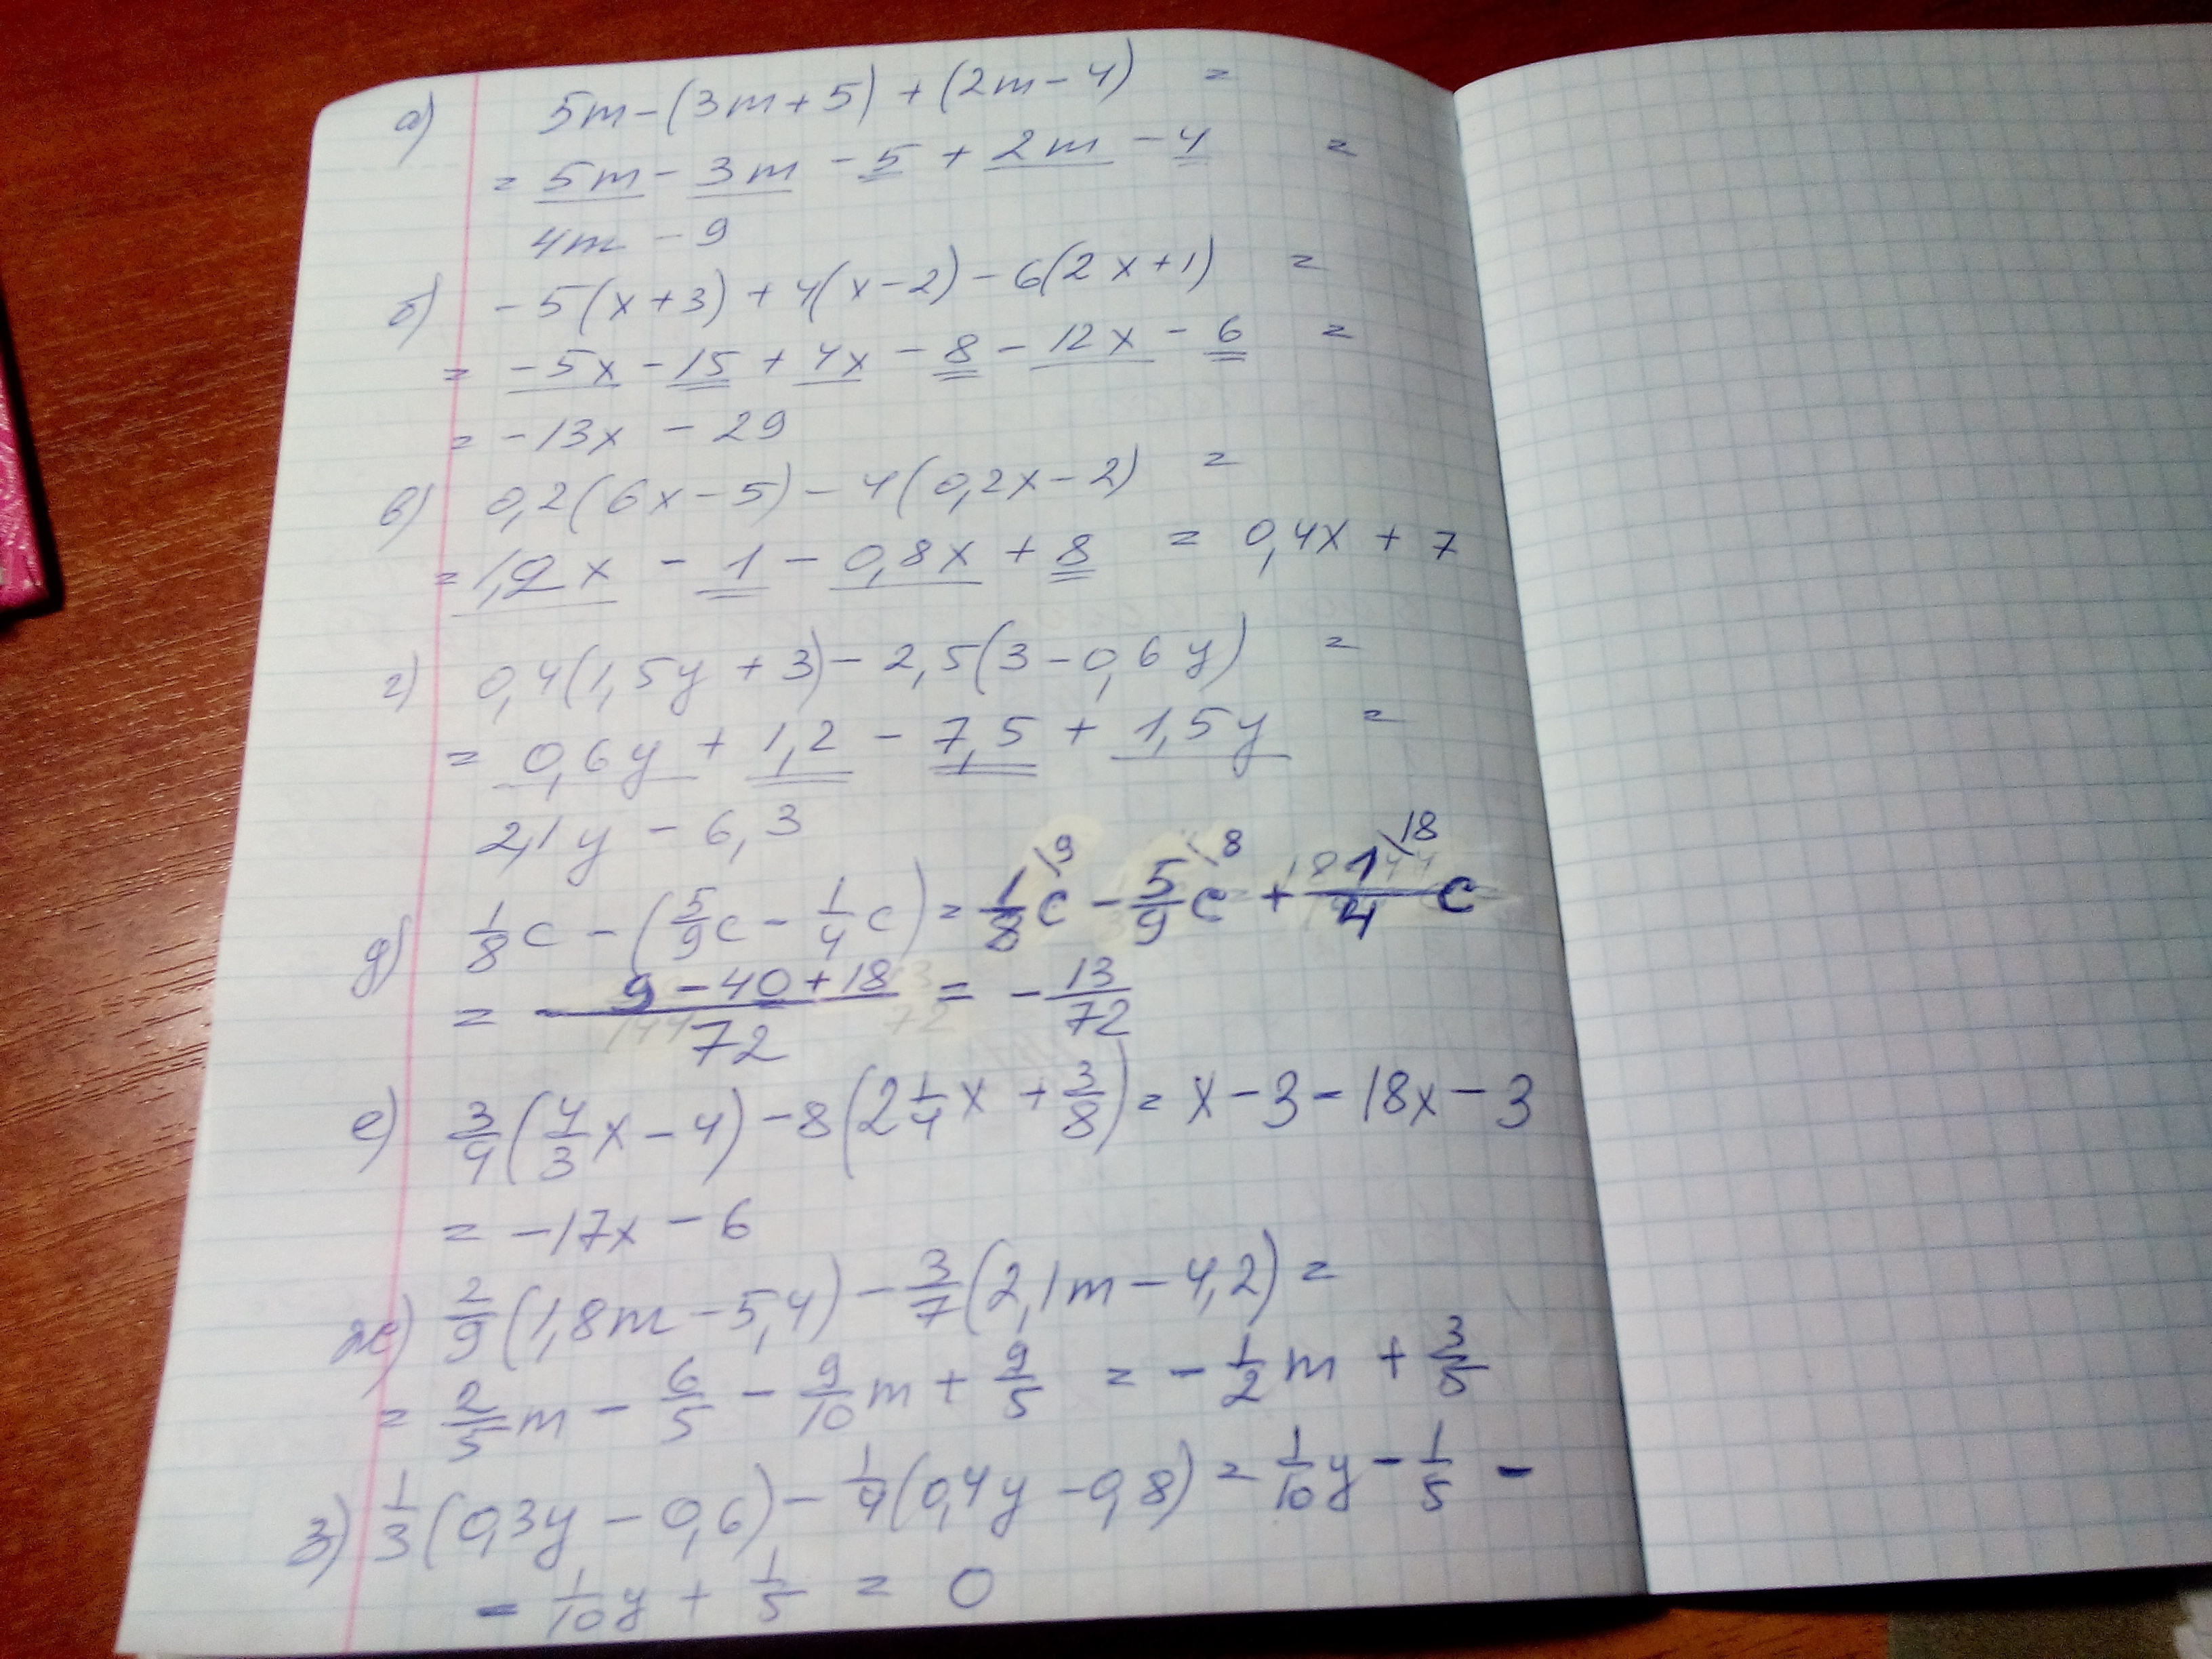 а) 5m-(3m+5)+(2m-4) =
= 5m - 3m - 5 + 2m - 4 =
4m - 9
б) -5(x+3)+4(x-2)-6(2x+1) =
= -5x - 15 + 4x - 8 - 12x - 6 =
= -13x - 29
в) 0,2(6x-5)-4(0,2x-2) =
= 1,2x - 1 - 0,8x + 8 = 0,4x + 7
г) 0,4(1,5y+3)-2,5(3-0,6y) =
= 0,6y + 1,2 - 7,5 + 1,5y =
2,1y - 6,3
д) 1/8 c - (5/9 c - 1/4 c) = 1/8\9 c - 5/9\8 c + 1/4\18 c
= (9-40+18)/72 = -13/72
е) 3/4(4/3 x - 4) - 8(2 1/4 x + 3/8) = x - 3 - 18x - 3
= -17x - 6
ж) 2/9(1,8m - 5,4) - 3/7(2,1m - 4,2) =
= 2/5 m - 6/5 - 9/10 m + 9/5 = - 1/2 m + 3/5
з) 1/3(0,3y - 0,6) - 1/4(0,4y - 0,8) = 1/10 y - 1/5 -
- 1/10 y + 1/5 = 0